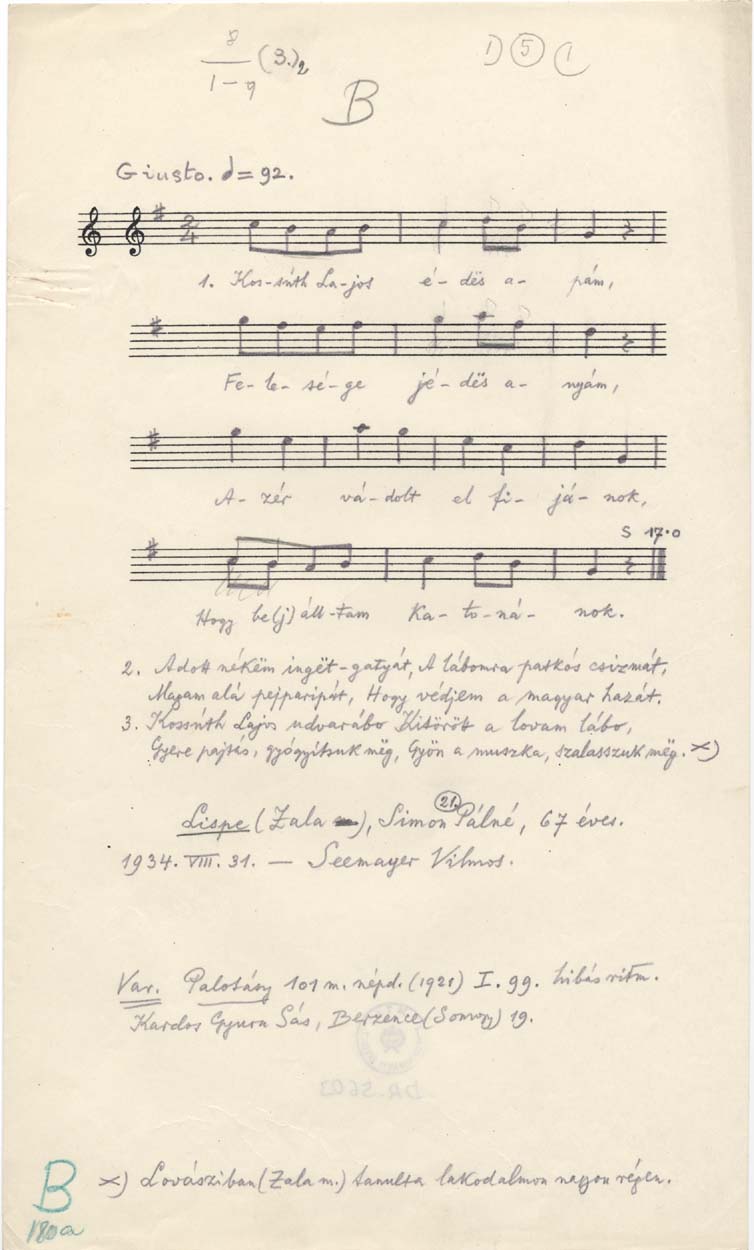 8
1-9 (3.)2
1) 5 (1
B
Giusto. d=92.
2
4
1. Kos-súth La-jos é-dës a-pám,
Fe-le-sé-ge jé-dës a-nyám,
A-zér vá-dolt el fi-já-nok,
S 17.0
Hogy be(j)áll-tam Ka-to-ná-nok.
2. Adott nékëm ingët-gatyát, A lábomra patkós csizmát,
Magam alá pejparipát, Hogy védjem a magyar hazát.
3. Kossúth Lajos udvarábo Kitöröt a lovam lábo,
Gyere pajtás, gyógyítsuk mëg, Gyön a muszka, szalasszuk mëg. x)
21.
Lispe (Zala), Simon Pálné, 67 éves.
1934. VIII. 31. — Seemayer Vilmos.
Var. Palotásy 101 m. népd. (1921) I. 99. hibás ritm.
Kardos Gyura Sás, Berzence (Somogy) 19.
x) Lovásziban (Zala m.) tanulta lakodalmon nagyon régen.
B
180a